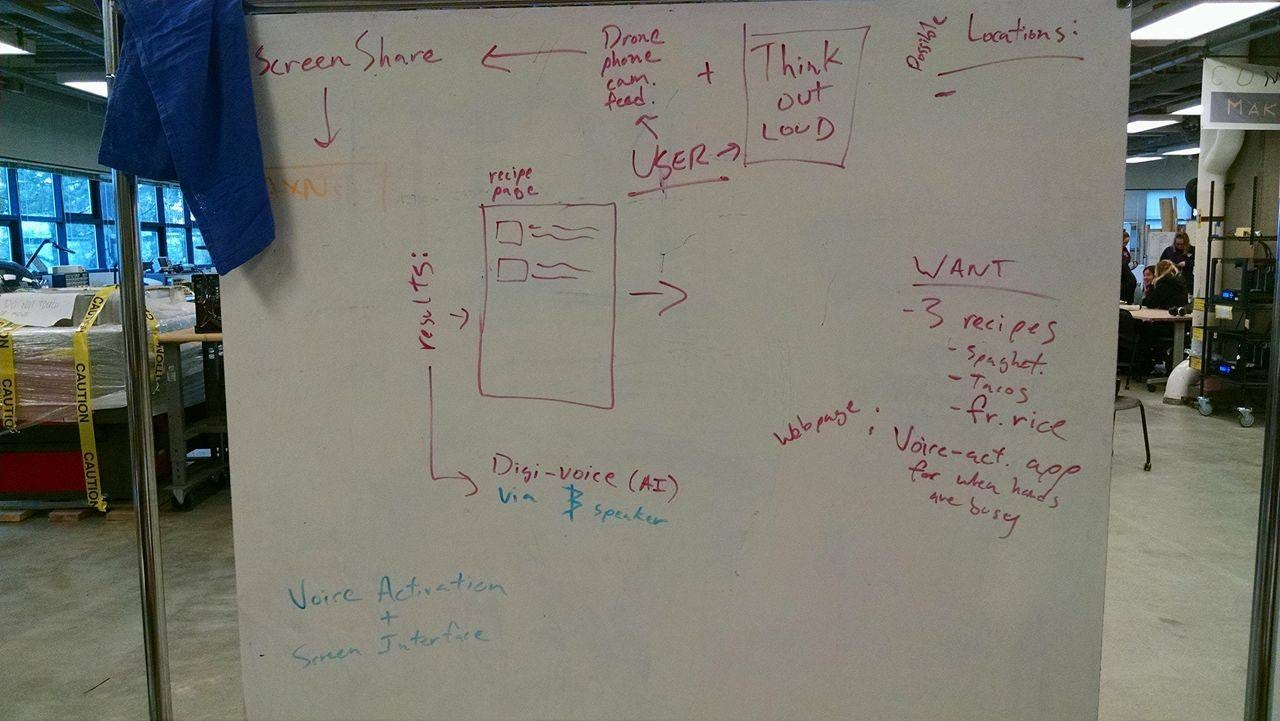 Screen Share
Drone
phone
cam.
feed.
+
Think
out
LOUD
USER
Possible
Locations:
-
recipe
page
results:
WANT
- 3 recipes
- spaghet.
- Tacos
- fr. rice
Webpage :
Voice-act. app
for when hands
are busy
Digi-voice (AI)
via speaker
Voice Activation
+
Screen Interface
CAUTION
CAUTION
CAUTION
MAK